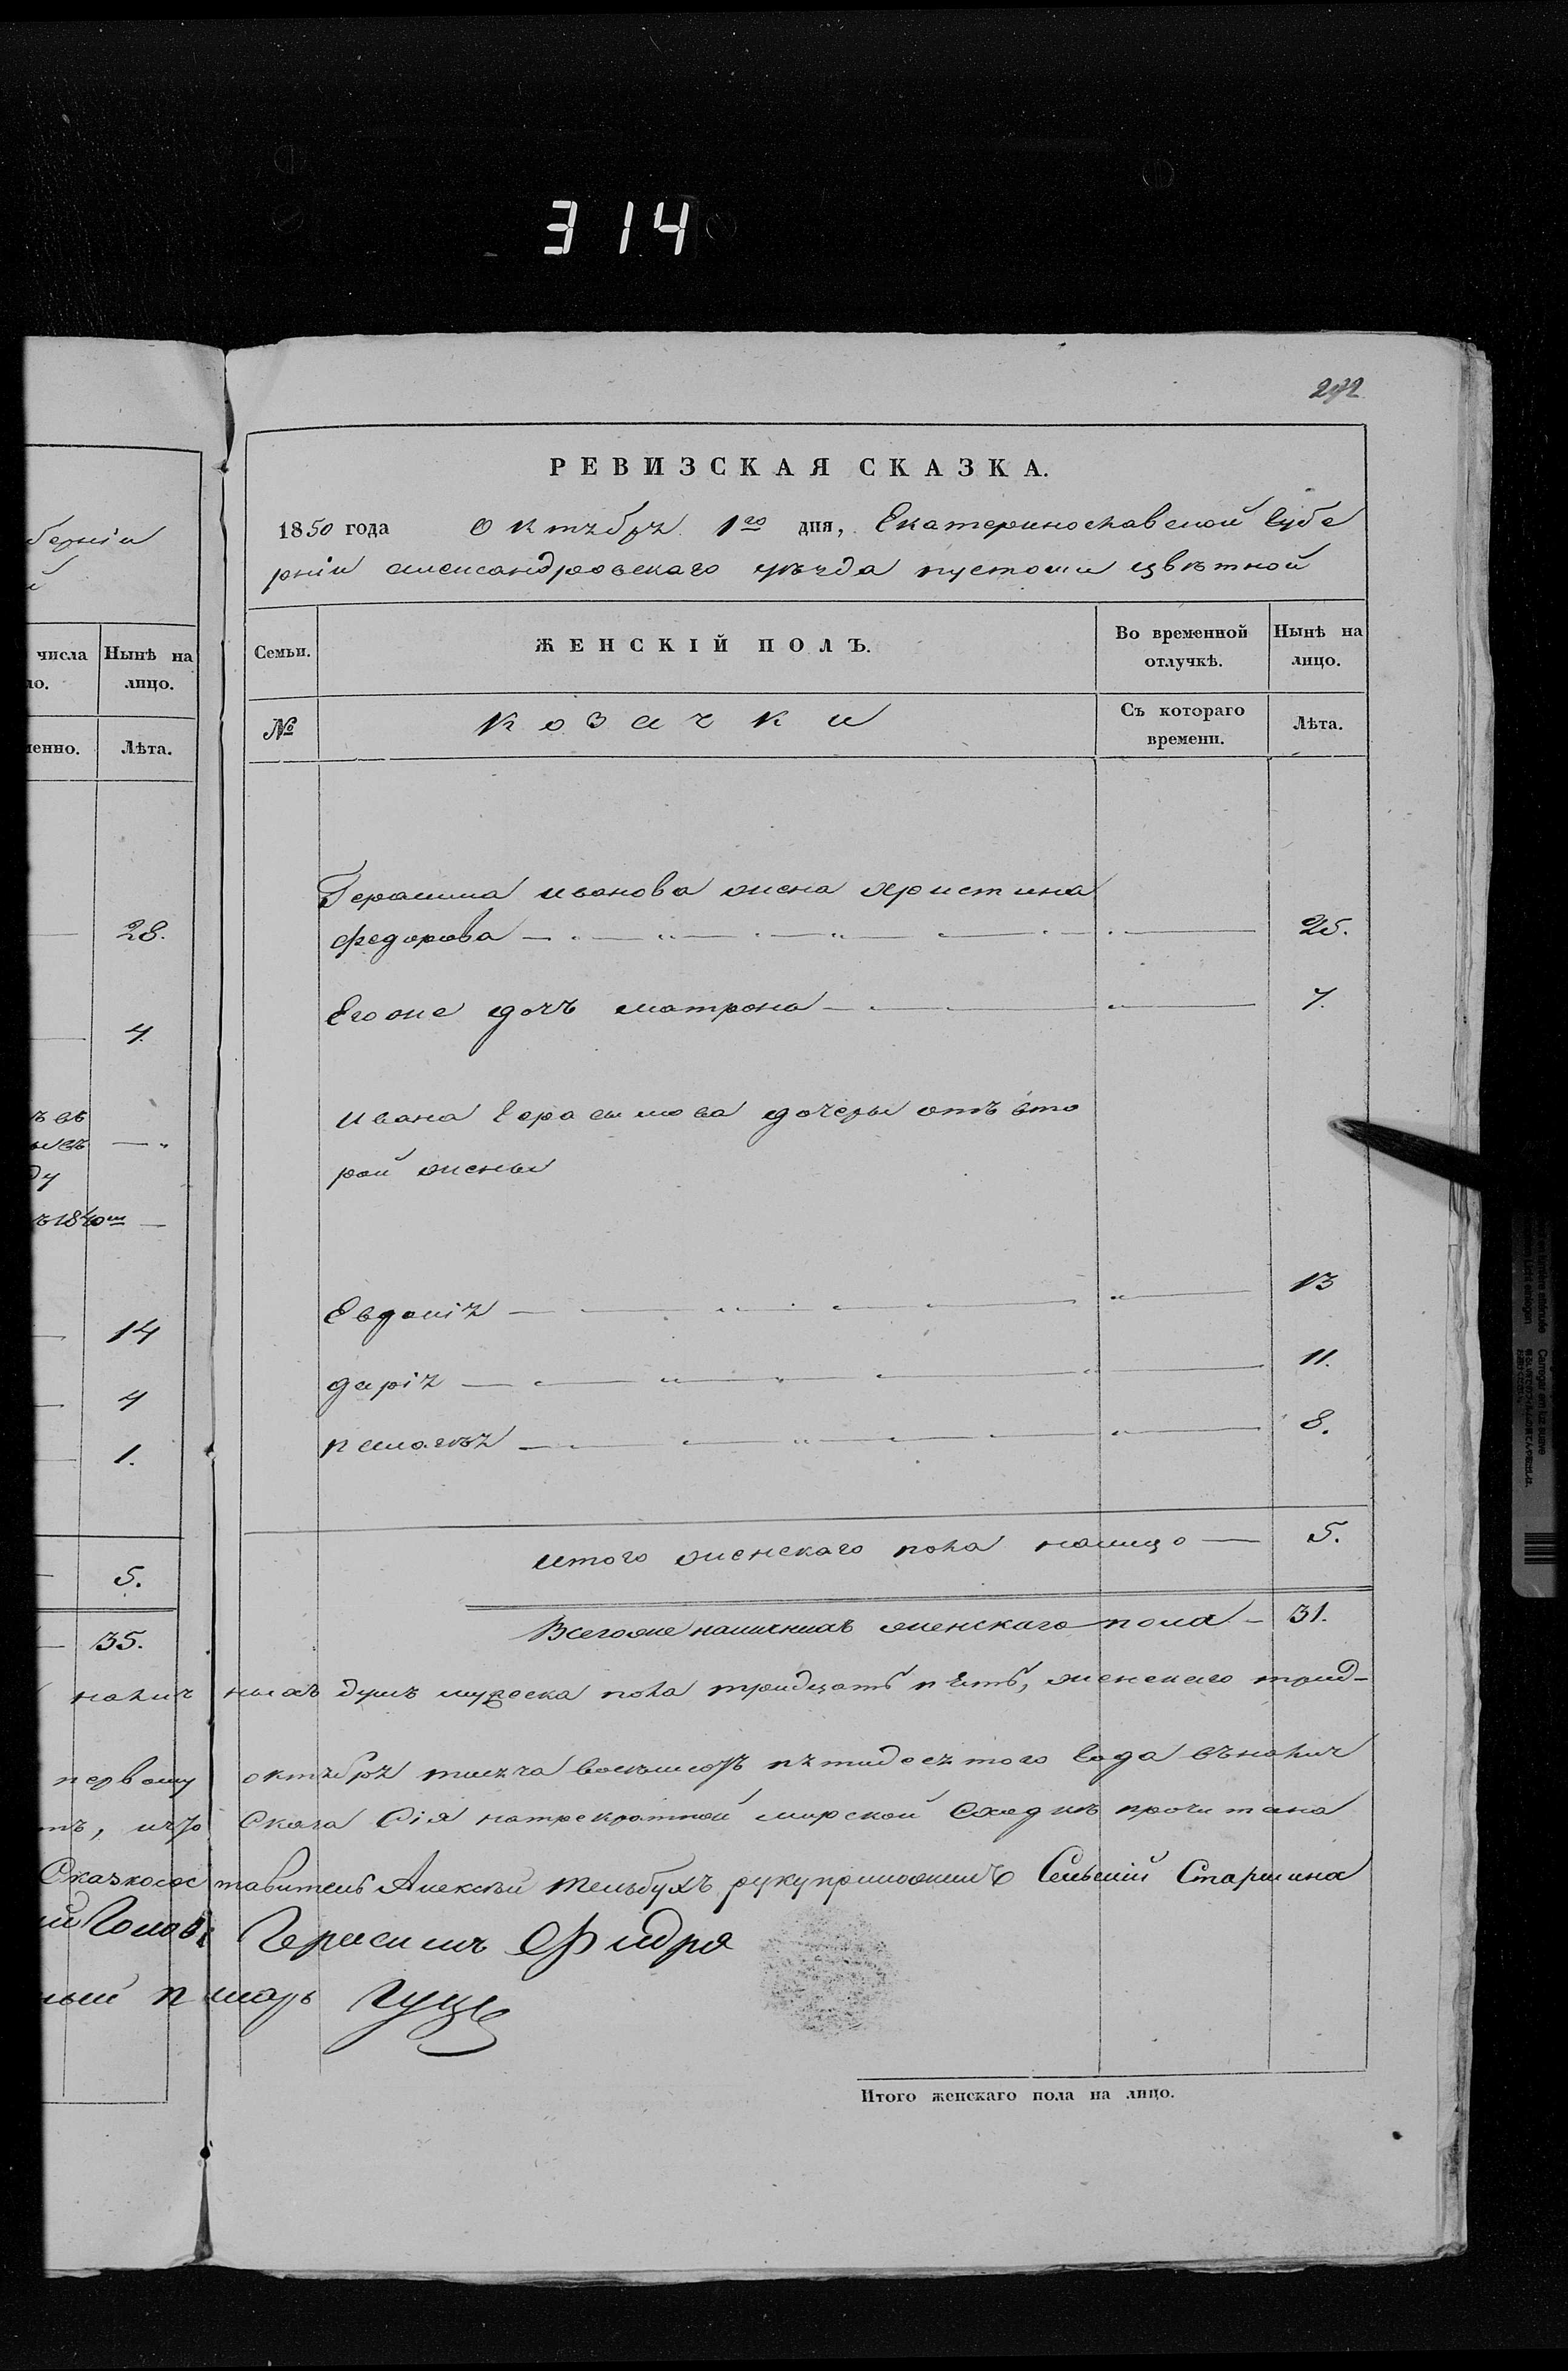 314
272
РЕВИЗСКАЯ СКАЗКА.
1850 года Октября 1го дня, Екатеринославской Губе
рніи александровскаго уѣзда пустоши цвѣтной
Семьи.
ЖЕНСКІЙ ПОЛЪ.
Во временной отлучкѣ.
Нынѣ на лицо.
№
козачки
Съ котораго времени.
Лѣта.
Герасима иванова жена христина
федорова 25.
Его же дочь матрона 7.
Ивана Герасимова дочеры отъ вто
рой жены
Евдокія 13
дарія 11.
8.
итого женскаго пола налицо 5.
Всего же наличныхъ женскаго пола 31.
берніи
числа
Нынѣ на
лицо.
Лѣта.
28.
4.
ду
1840
14
4
1.
5.
35.
налич ныхъ душъ мужеска пола тридцать пять, женскаго трид-
первому октября тысяча восемьсотъ пятидесятого Года въналич
что Скаска Сія натрекратной мирской Сходкѣ прочитана
Сказкосос тавитель Алексѣй Тельбухъ руку приложилъ Сельскій Старшина
Голова Герасимъ Фидря
ный писарь Гуцъ
Итого женскаго пола на лицо.